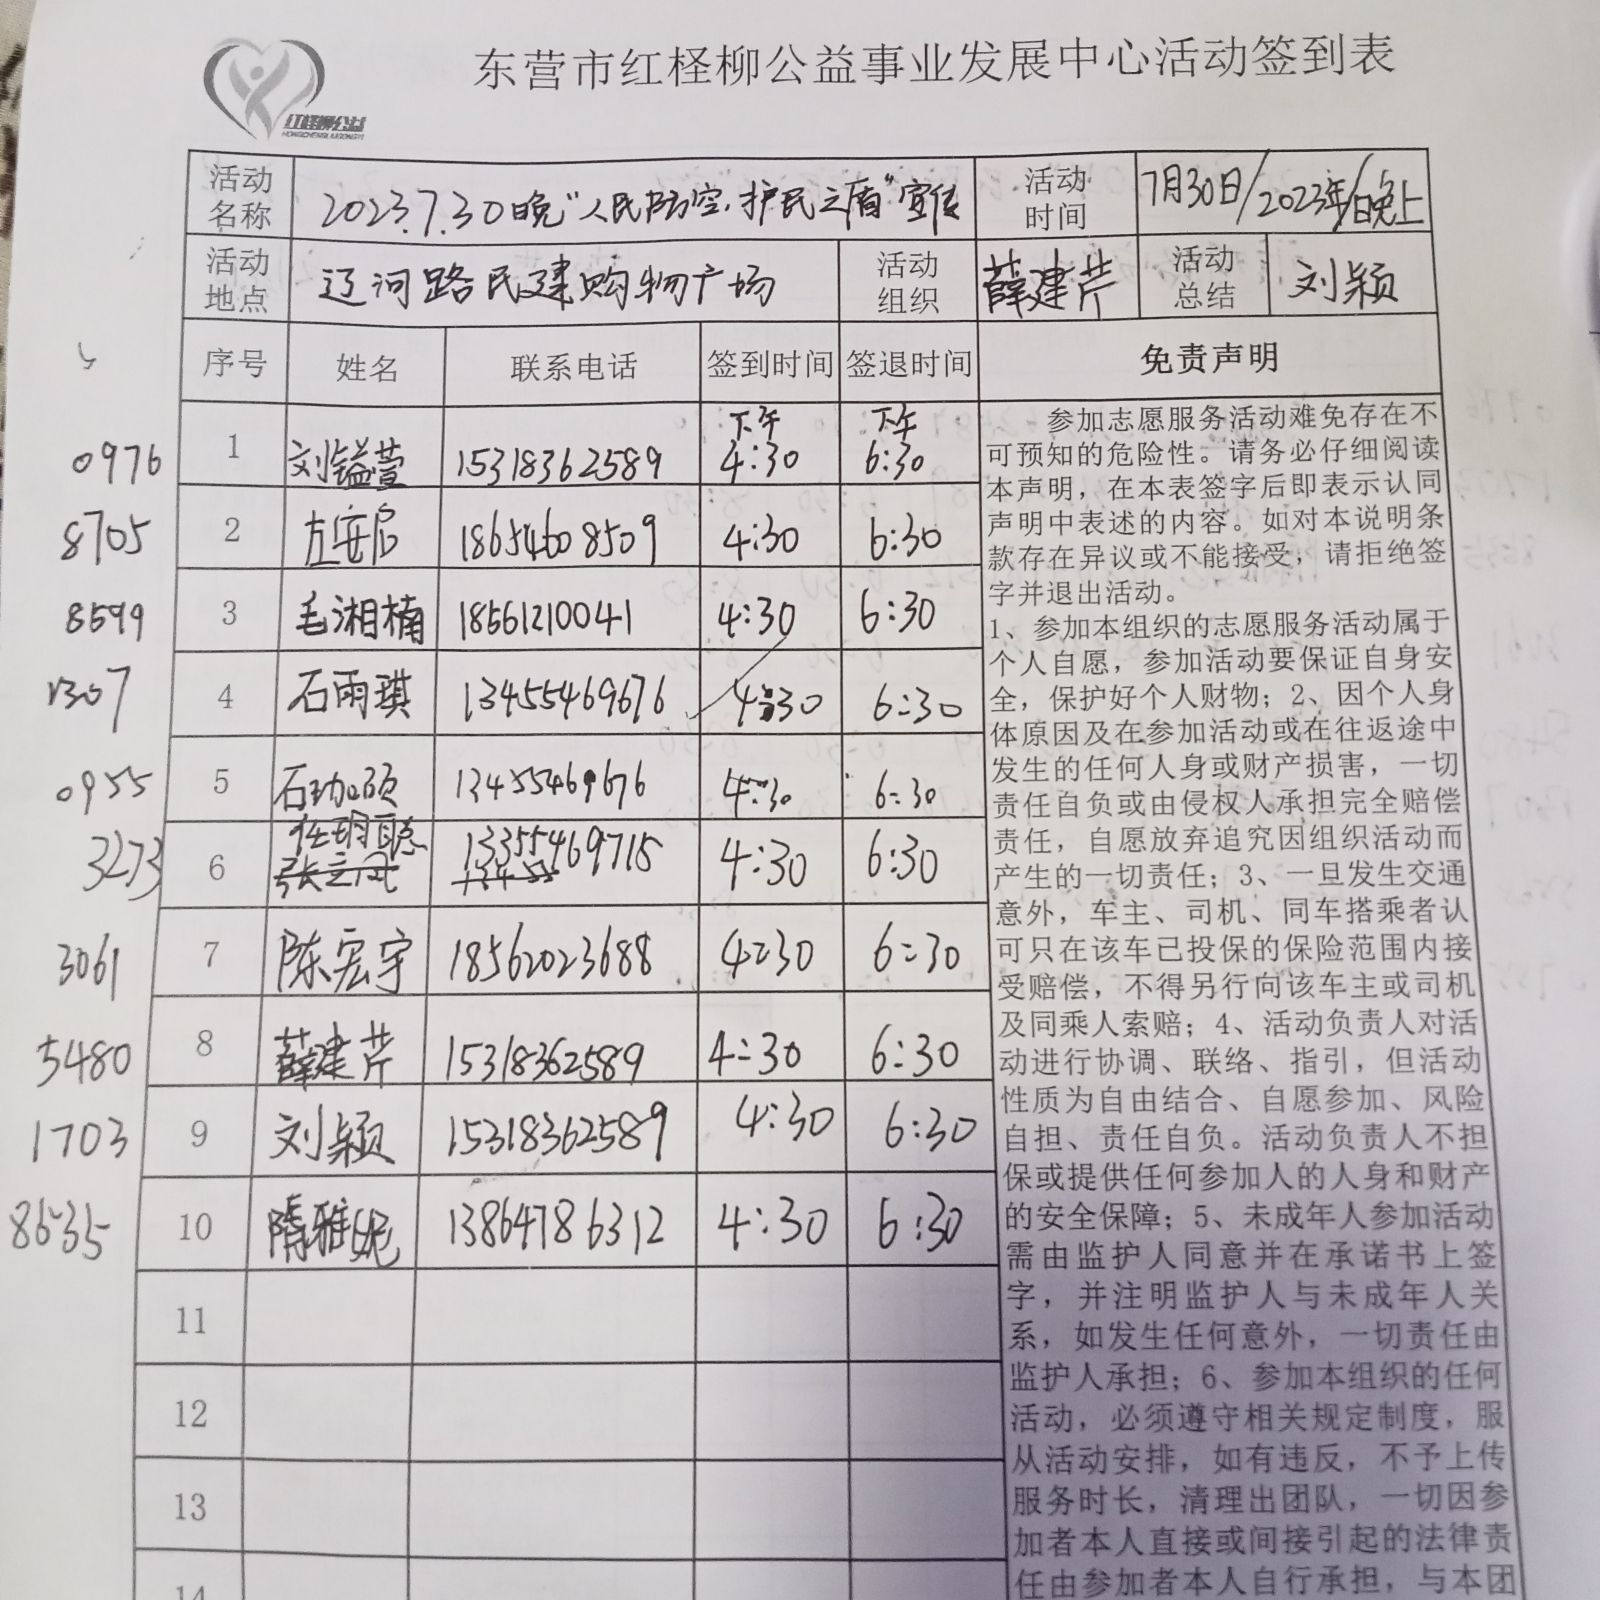 东营市红柽柳公益事业发展中心活动签到表
红柽柳公益
HONGCHENGLIUGONGYI
活动名称 2023.7.30晚“人民防空·护民之盾”宣传 活动时间 7月30日/2023年/晚上
活动地点 辽河路民建购物广场 活动组织 薛建芹 活动总结 刘颖
序号 姓名 联系电话 签到时间 签退时间 免责声明
0976 1 刘镒萱 15318362589 下午4:30 下午6:30
8705 2 左安启 18654608509 4:30 6:30
8599 3 毛湘楠 18561210041 4:30 6:30
1307 4 石雨琪 13455469676 4:30 6:30
0955 5 石 13455469676 4:30 6:30
3273 6 任玥聪 13355469715 4:30 6:30
3061 7 陈宏宇 18562023688 4:30 6:30
5480 8 薛建芹 15318362589 4:30 6:30
1703 9 刘颖 15318362589 4:30 6:30
8635 10 隋雅妮 13864786312 4:30 6:30
11
12
13
14
参加志愿服务活动难免存在不
可预知的危险性。请务必仔细阅读
本声明，在本表签字后即表示认同
声明中表述的内容。如对本说明条
款存在异议或不能接受，请拒绝签
字并退出活动。
1、参加本组织的志愿服务活动属于
个人自愿，参加活动要保证自身安
全，保护好个人财物；2、因个人身
体原因及在参加活动或在往返途中
发生的任何人身或财产损害，一切
责任自负或由侵权人承担完全赔偿
责任，自愿放弃追究因组织活动而
产生的一切责任；3、一旦发生交通
意外，车主、司机、同车搭乘者认
可只在该车已投保的保险范围内接
受赔偿，不得另行向该车主或司机
及同乘人索赔；4、活动负责人对活
动进行协调、联络、指引，但活动
性质为自由结合、自愿参加、风险
自担、责任自负。活动负责人不担
保或提供任何参加人的人身和财产
的安全保障；5、未成年人参加活动
需由监护人同意并在承诺书上签
字，并注明监护人与未成年人关
系，如发生任何意外，一切责任由
监护人承担；6、参加本组织的任何
活动，必须遵守相关规定制度，服
从活动安排，如有违反，不予上传
服务时长，清理出团队，一切因参
加者本人直接或间接引起的法律责
任由参加者本人自行承担，与本团